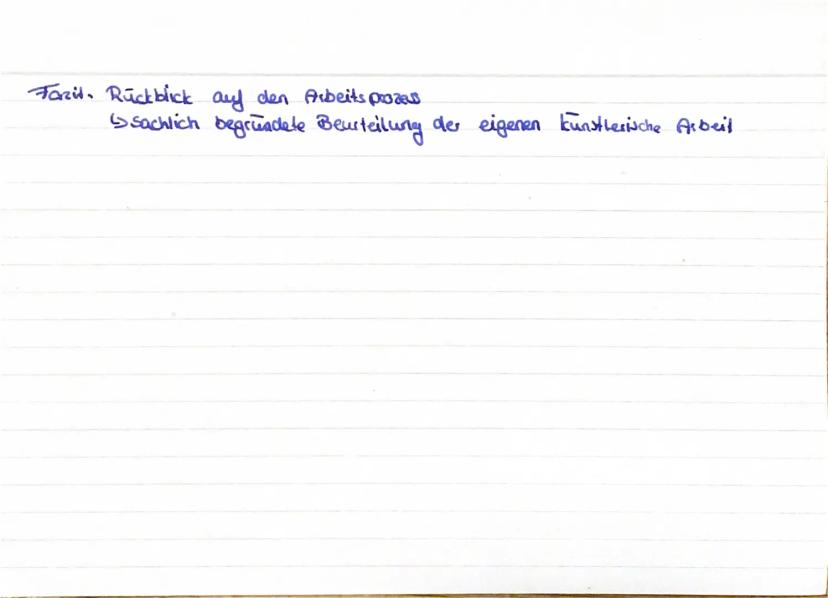 Fazit. Rückblick auf den Arbeitsprozess
↳ sachlich begründete Beurteilung der eigenen künstlerische Arbeit